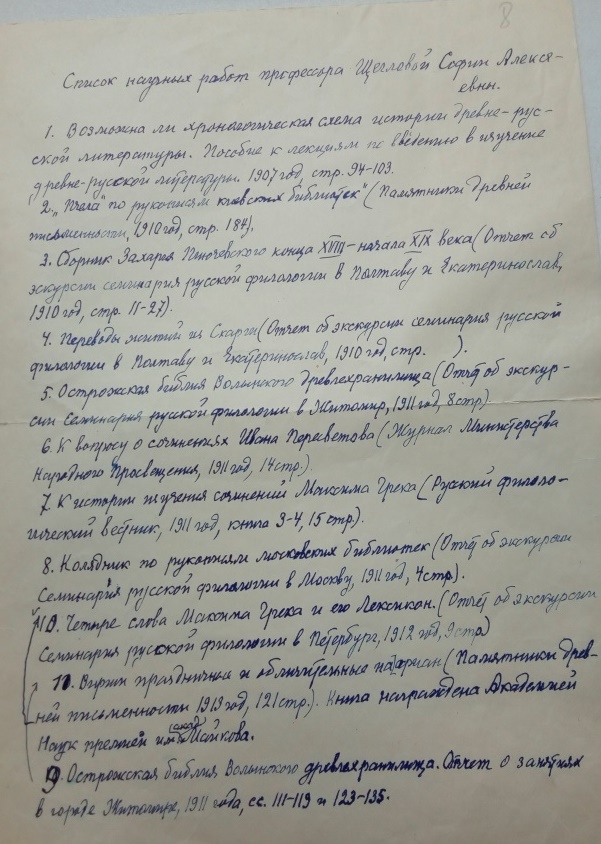 8
Список научных работ профессора Щегловой Софии Алексе-
евны.
1. Возможна ли хронологическая схема истории древне-рус-
ской литературы. Пособие к лекциям по введению в изучение
древне-русской литературы. 1907 год, стр. 94-103.
2. „Пчела" по рукописям киевских библиотек" (Памятники древней
письменности, 1910 год, стр. 184).
3. Сборник Захария конца XVIII – начала XIX века (Отчет об
экскурсии семинария русской филологии в Полтаву и Екатеринослав,
1910 год, стр. 11-27).
4. Переводы житий из Скарги (Отчет об экскурсии семинария русской
филологии в Полтаву и Екатеринослав, 1910 год, стр. ).
5. Острожская библия Волынского древлехранилища (Отчет об экскур-
сии семинария русской филологии в Житомир, 1911 год, 8 стр)
6. К вопросу о сочинениях Ивана Пересветова (Журнал Министерства
Народного Просвещения, 1911 год, 14 стр.).
7. К истории изучения сочинений Максима Грека (Русский филоло-
гический вестник, 1911 год, книга 3-4, 15 стр.).
8. Колядник по рукописям московских библиотек (Отчет об экскурсии
Семинария русской филологии в Москву, 1911 год, 4 стр.).
10. Четыре слова Максима Грека и его Лексикон. (Отчет об экскурсии
Семинария русской филологии в Петербург, 1912 год, 9 стр)
11. Вирши праздничные и обличительные на ариан (Памятники древ-
ней письменности 1913 год, 121 стр.). Книга награждена Академией
Наук премией им. Майкова.
9 Острожская библия Волынского древлехранилища. Отчет о занятиях
в городе Житомире, 1911 года, сс. 111-119 и 123-135.